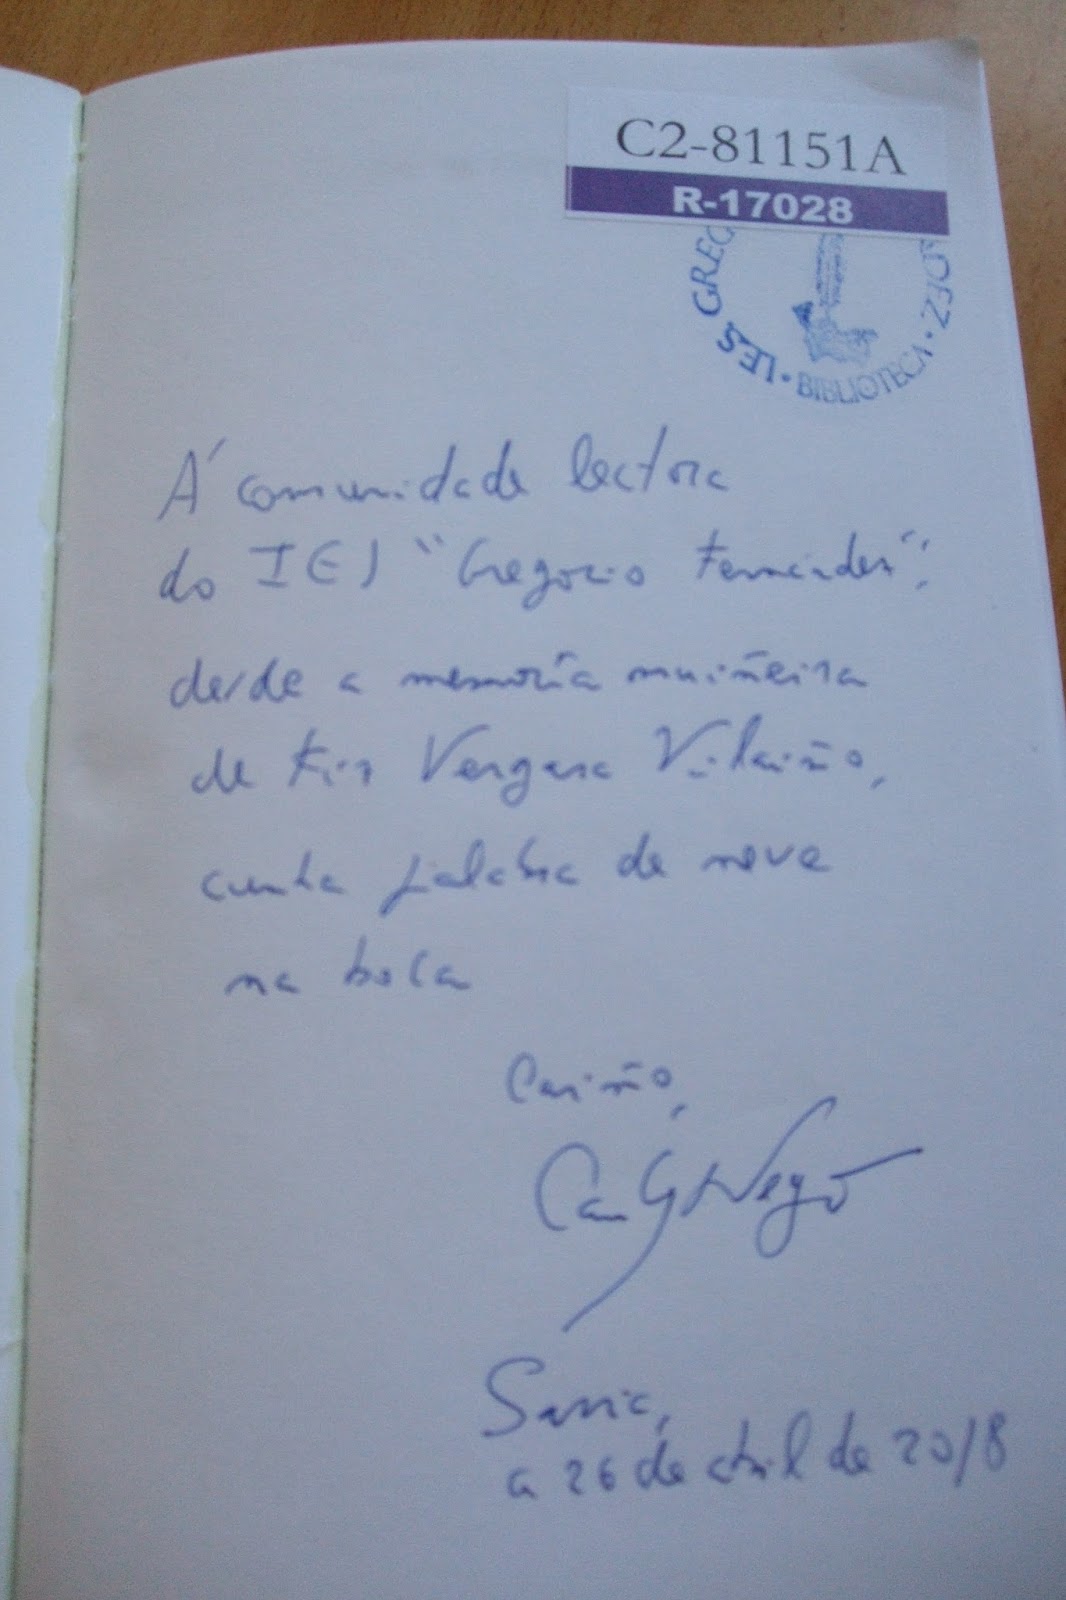 C2-81151A
R-17028
I.E.S. GREG
DEZ · BIBLIOTECA ·
Á comunidade lectora
do IES "Gregorio Fernández",
desde a memoria muiñeira
de Fiz Vergara Vilariño,
cunha palabra de neve
na boca
Cariño,
Sarria,
a 26 de abril de 2018